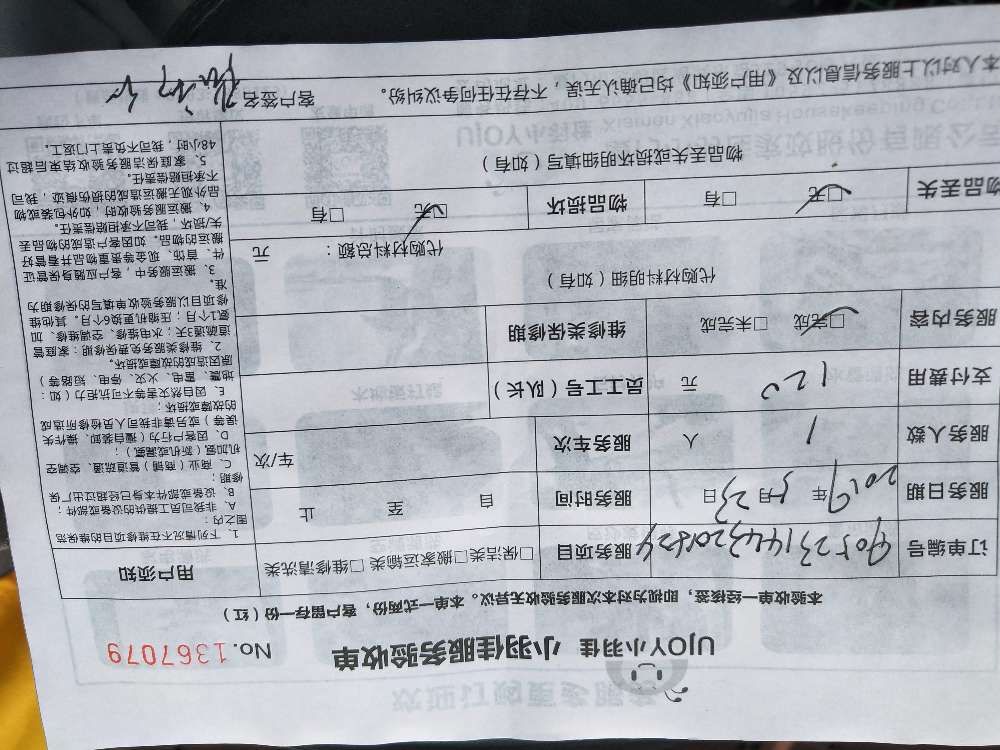 UJOY小羽佳 小羽佳服务验收单 No.1367079
本验收单一经接签，即视为对本次服务验收无异议。本单一式两份，客户留存一份（红）
订单编号 服务项目 □保洁类□搬家运输类□维修清洗类
服务日期 2019年 5月 23日 服务时间 自 至 止
服务人数 1 人 服务车次 车/次
支付费用 120 元 员工工号（队长）
服务内容 ☑完成 □未完成 维修类保修期
代购材料明细（如有）
代购材料总额： 元
物品丢失 ☑无 □有 物品损坏 ☑无 □有
物品丢失或损坏明细填写（如有）
用户须知
1、下列情况不在维修项目的维保范
围之内：
A、非我司员工提供的设备或部件；
B、设备或部件本身已经超过出厂保
修期；
C、商业（商铺）管道疏通、空调空
机加氨（新机或漏氨）；
D、因客户行为（擅自装卸、操作失
误等）或另请非我司人员检修所造成
的故障或损坏；
E、因自然灾害等不可抗拒力（如：
地震、雷电、火灾、停电、短路等）
原因造成的故障或损坏。
2、维修类服务免费保修期：家庭管
道疏通3天；水电维修、空调维修、加
氨1个月；压缩机更换6个月。其他维
修项目以服务验收单填写的保修期为
准。
3、搬运服务中，客户应随身保管证
件、首饰、现金等贵重物品并看管好
搬运的物品。如因客户造成的物品丢
失/损坏，我司不承担赔偿责任。
4、搬运服务验收时，如外包装或物
品外观无搬运造成的损伤痕迹，我司
不承担赔偿责任。
5、家庭保洁服务验收结束后超过
48小时，我司不负责上门返工。
本人对以上服务信息以及《用户须知》均已确认无误，不存在任何争议纠纷。 客户签名